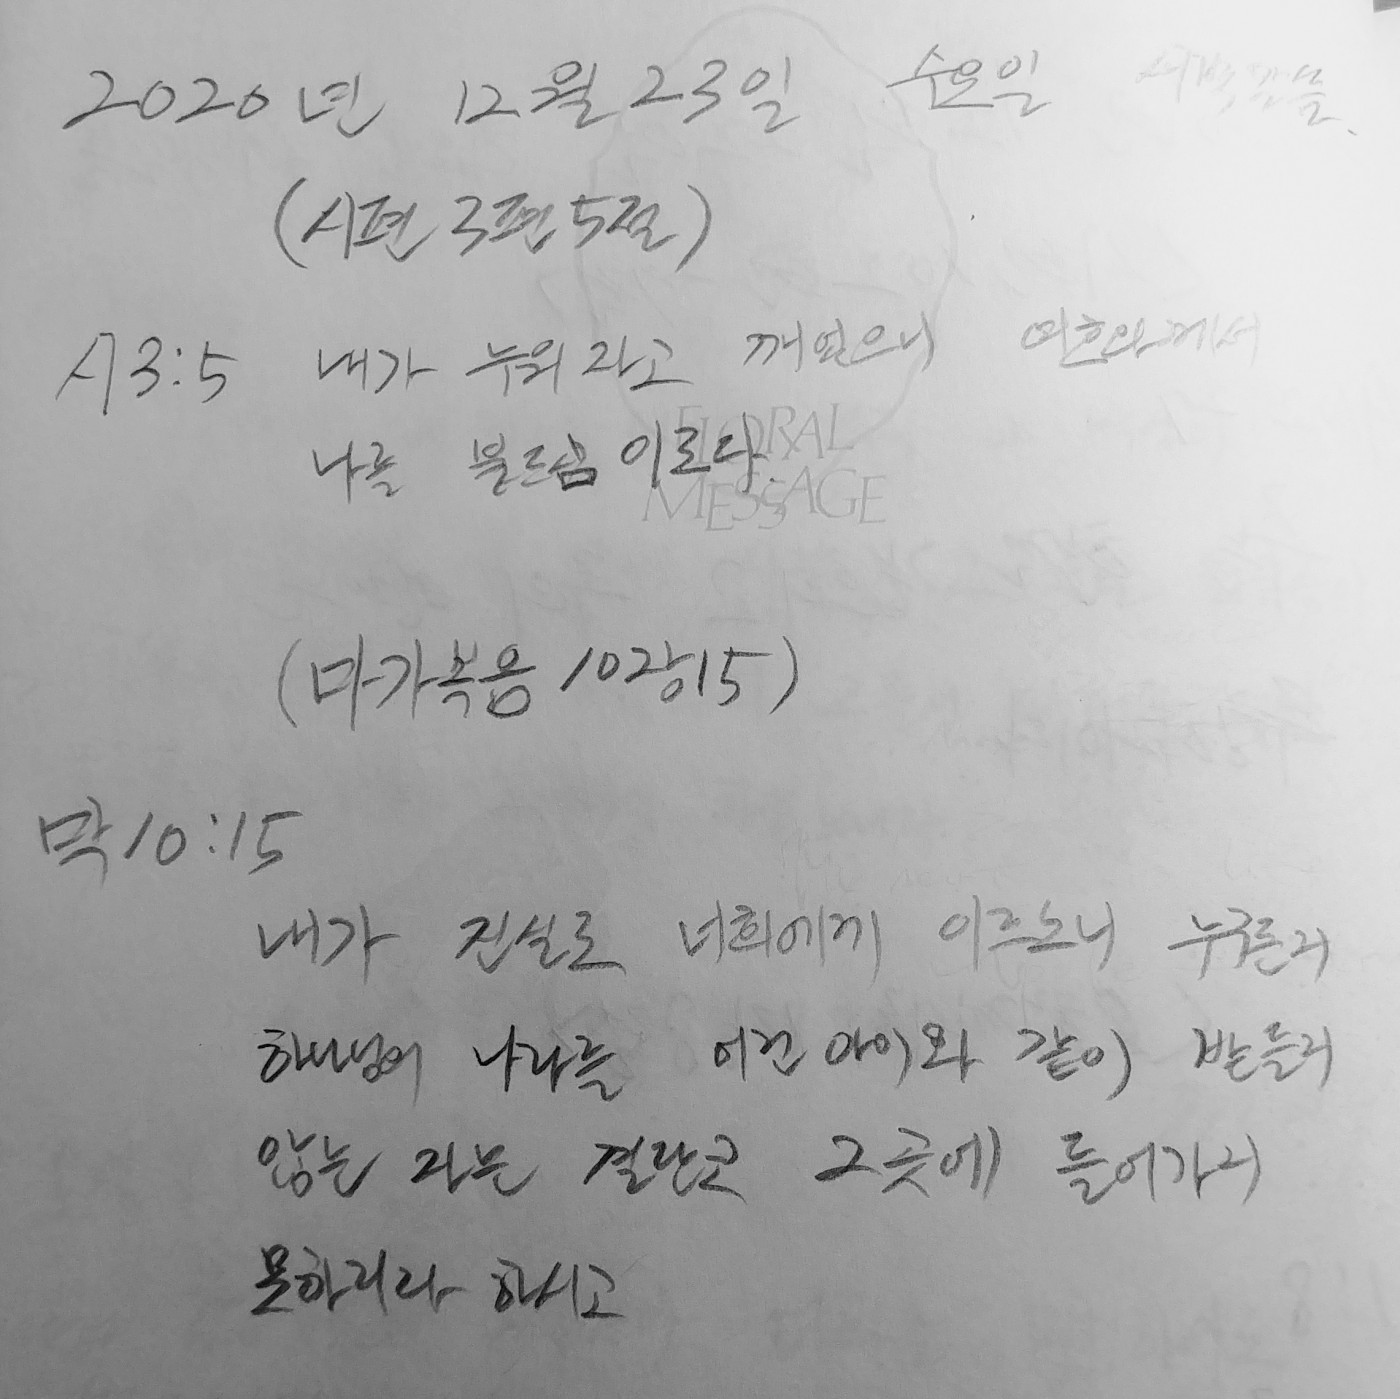 2020년 12월 23일 수요일
(시편 3편 5절)
시3:5 내가 누워 자고 깨었으니 여호와께서
나를 붙드심이로다.
FLORAL
MESSAGE
(마가복음 10장15)
막10:15
내가 진실로 너희에게 이르노니 누구든지
하나님의 나라를 어린 아이와 같이 받들지
않는 자는 결단코 그곳에 들어가지
못하리라 하시고